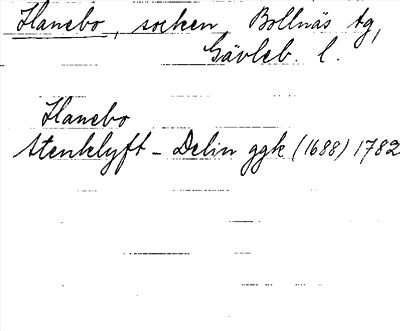 Hanebo, socken Bollnäs tg,
Gävleb. l.
Hanebo
Stenklyft - Delin ggk (1688) 1782